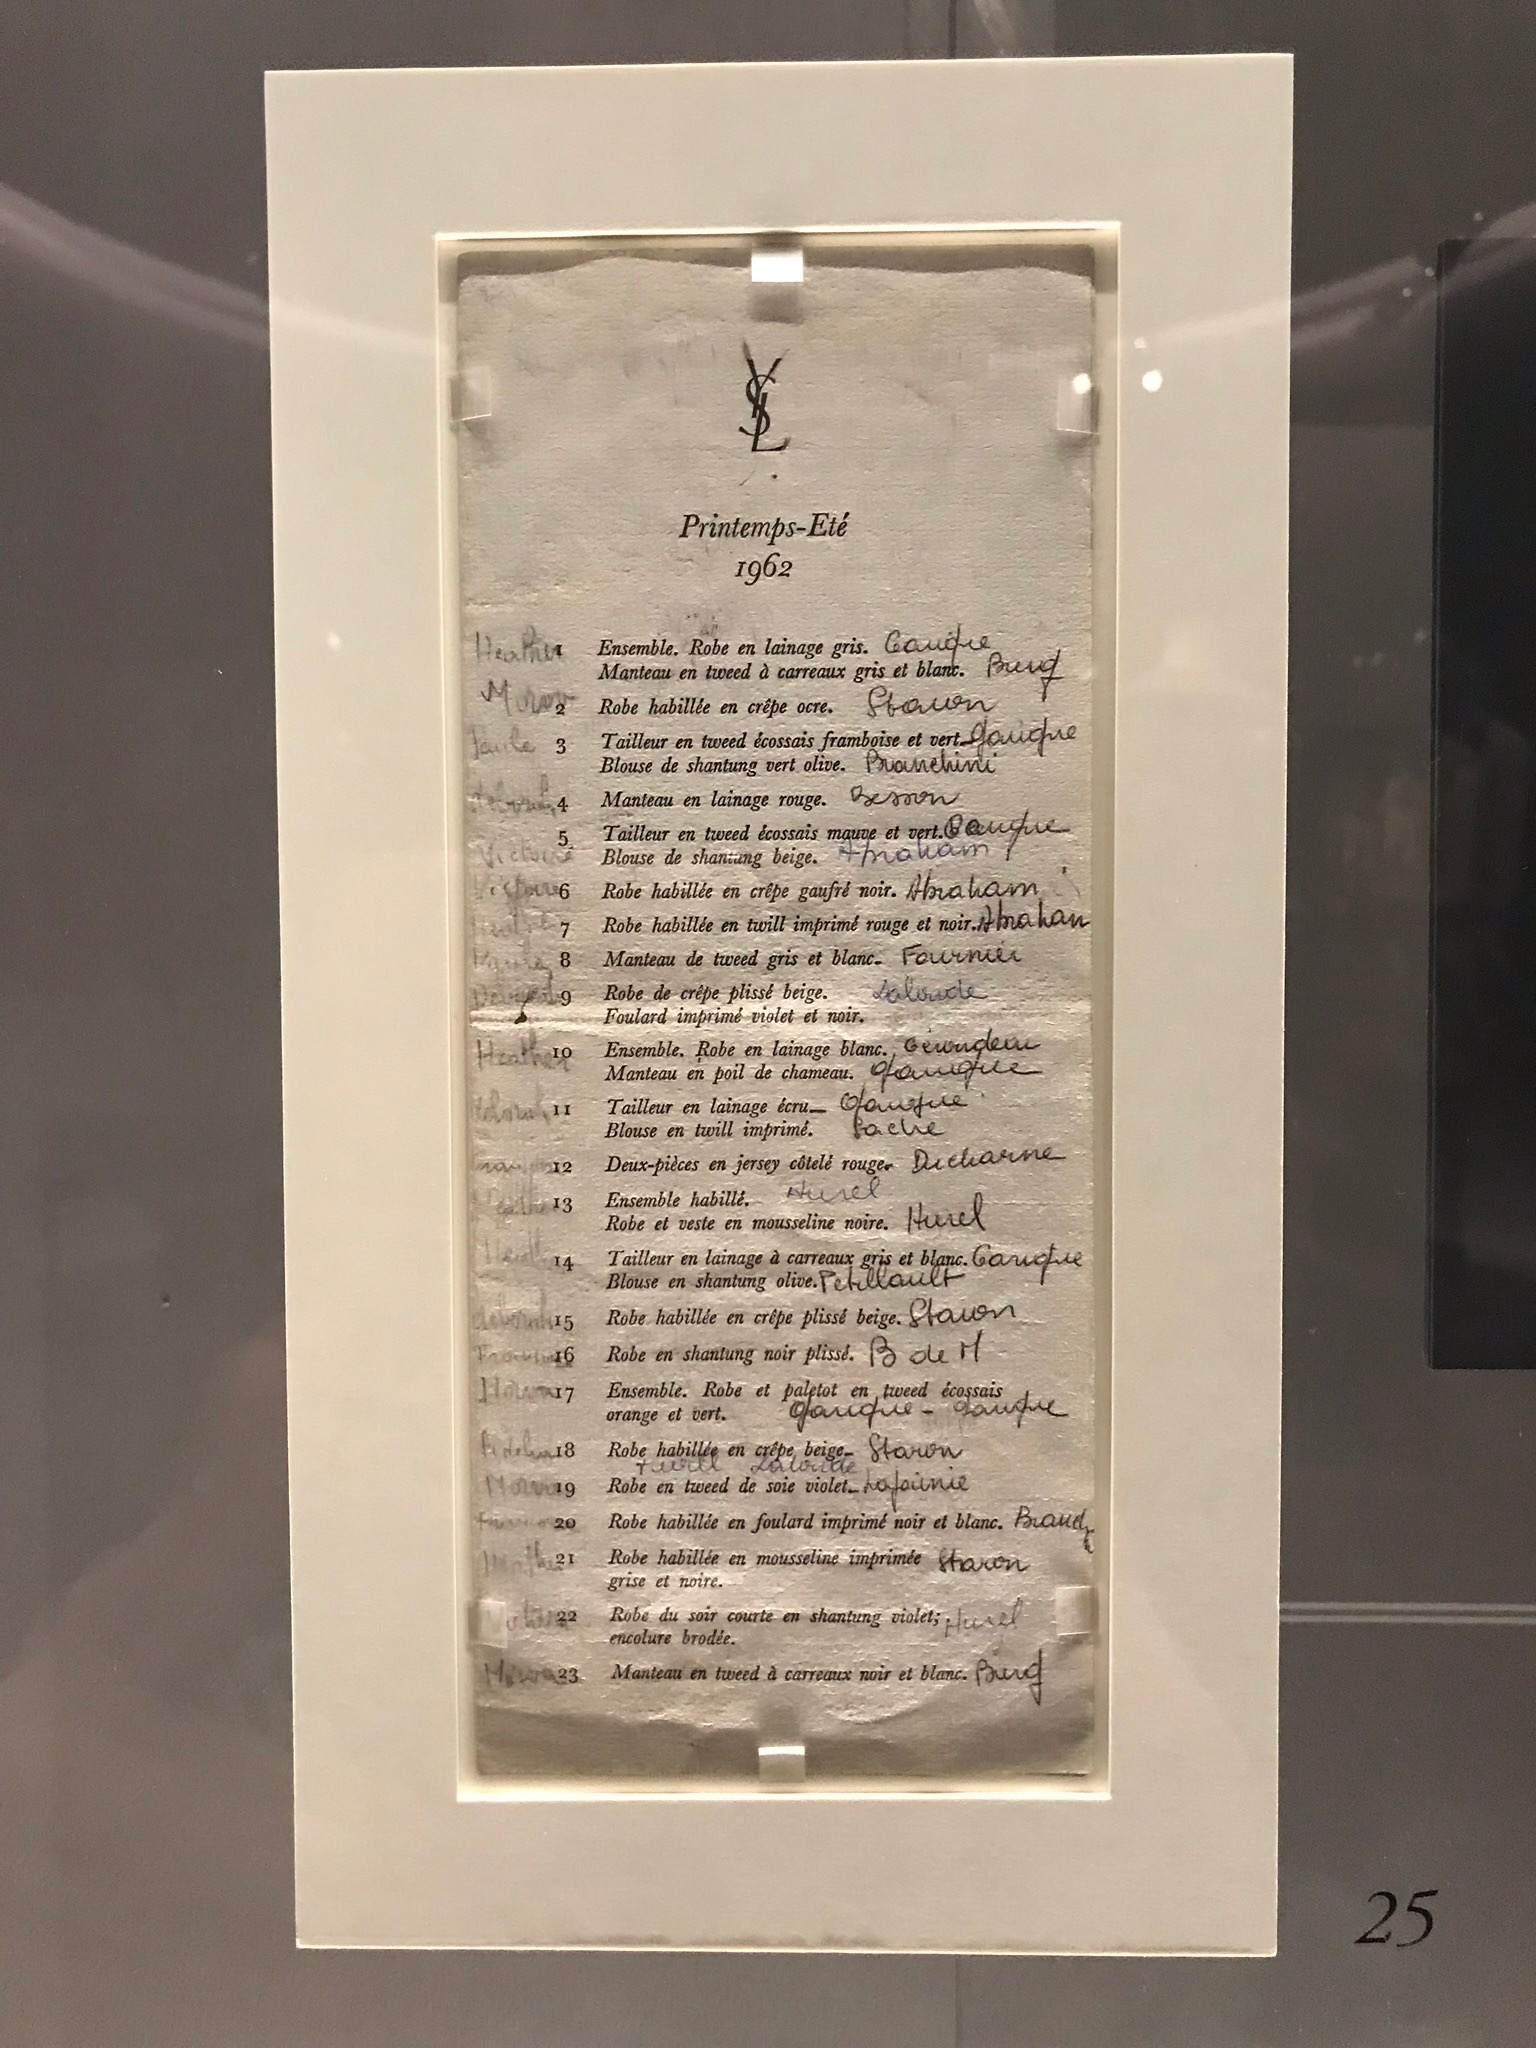 YSL
Printemps-Eté
1962
Heather 1 Ensemble. Robe en lainage gris. Gauigue
Manteau en tweed à carreaux gris et blanc. Burg
2 Robe habillée en crêpe ocre. Staron
Paule 3 Tailleur en tweed écossais framboise et vert. Gauigue
Blouse de shantung vert olive. Bianchini
4 Manteau en lainage rouge. Besson
5 Tailleur en tweed écossais mauve et vert. Gauigue
Victoire Blouse de shantung beige. Abraham
Victoire 6 Robe habillée en crêpe gaufré noir. Abraham
7 Robe habillée en twill imprimé rouge et noir. Abraham
8 Manteau de tweed gris et blanc. Fournier
9 Robe de crêpe plissé beige. Lalonde
Foulard imprimé violet et noir.
Heather 10 Ensemble. Robe en lainage blanc.
Manteau en poil de chameau. Gauigue
11 Tailleur en lainage écru Gauigue
Blouse en twill imprimé. Sache
12 Deux-pièces en jersey côtelé rouge. Ducharne
13 Ensemble habillé. Hurel
Robe et veste en mousseline noire. Hurel
14 Tailleur en lainage à carreaux gris et blanc. Gauigue
Blouse en shantung olive. Petillault
15 Robe habillée en crêpe plissé beige. Staron
16 Robe en shantung noir plissé. B de M
17 Ensemble. Robe et paletot en tweed écossais
orange et vert. Gauigue - Gauigue
18 Robe habillée en crêpe beige Staron
Hurel Lalonde
19 Robe en tweed de soie violet
20 Robe habillée en foulard imprimé noir et blanc.
Heather 21 Robe habillée en mousseline imprimée Staron
grise et noire.
22 Robe du soir courte en shantung violet; Hurel
encolure brodée.
23 Manteau en tweed à carreaux noir et blanc. Burg
25